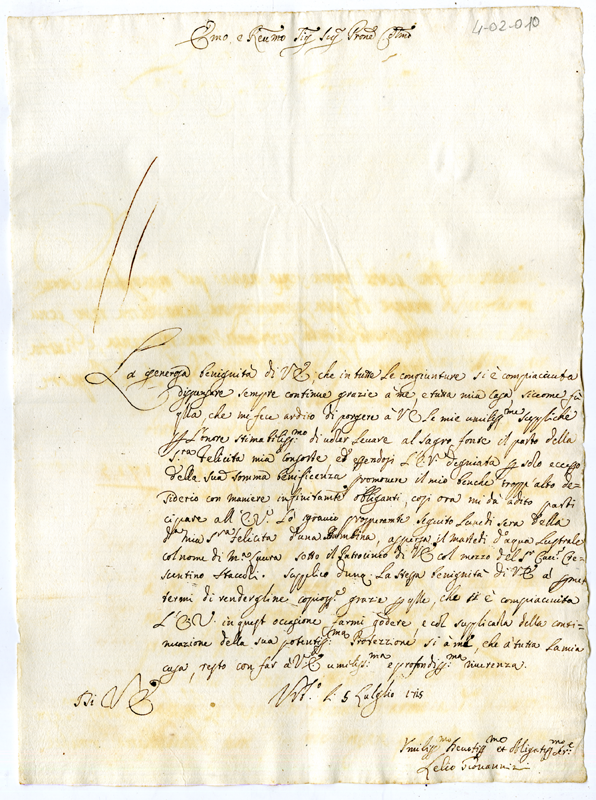 4-02-010
Emo e Revmo Sig Sig Prone Colmo
La generosa benignità di VE che in tutte le congiunture si è compiaciuta
dispensare sempre continue grazie a me, e tutta mia Casa, siccome fù
q̃lla che mi fece ardito di porgere à VE le mie umilissme suppliche
p l'onore stimabilissmo di voler levare al sagro fonte il parto della
Sra Felicita mia consorte ed essendosi l'EV degniata p solo eccesso
della sua somma benificenza promovere il mio benche troppo alto de-
siderio con maniere infinitamte obliganti, così ora mi dà adito parti
cipare all'EV. lo sgravio prosperamte seguito Lunedì sera della
da mia Sra Felicita d'una Bambina, aspersa il martedì d'aqua Lustrale
col nome di Ma Laura sotto il Patrocinio di VE col mezzo del Sr Cre-
scentino Staccoli. Supplico dunq. la stessa benignità di VE à pmet
termi di rendergline copiose grazie p q̃lle, che si è compiaciuta
l'EV. in quest occasione farmi godere, e col supplicarla della conti-
nuazione della sua potentissma Protezzione sì à me, che à tutta la mia
casa, resto con far à VE umilissma e profondissma riverenza.
Di VE
Urb.o li 5 Luglio 1715
Umilissmo Devotissmo et Obligatissmo Sre
Lelio Giovannini